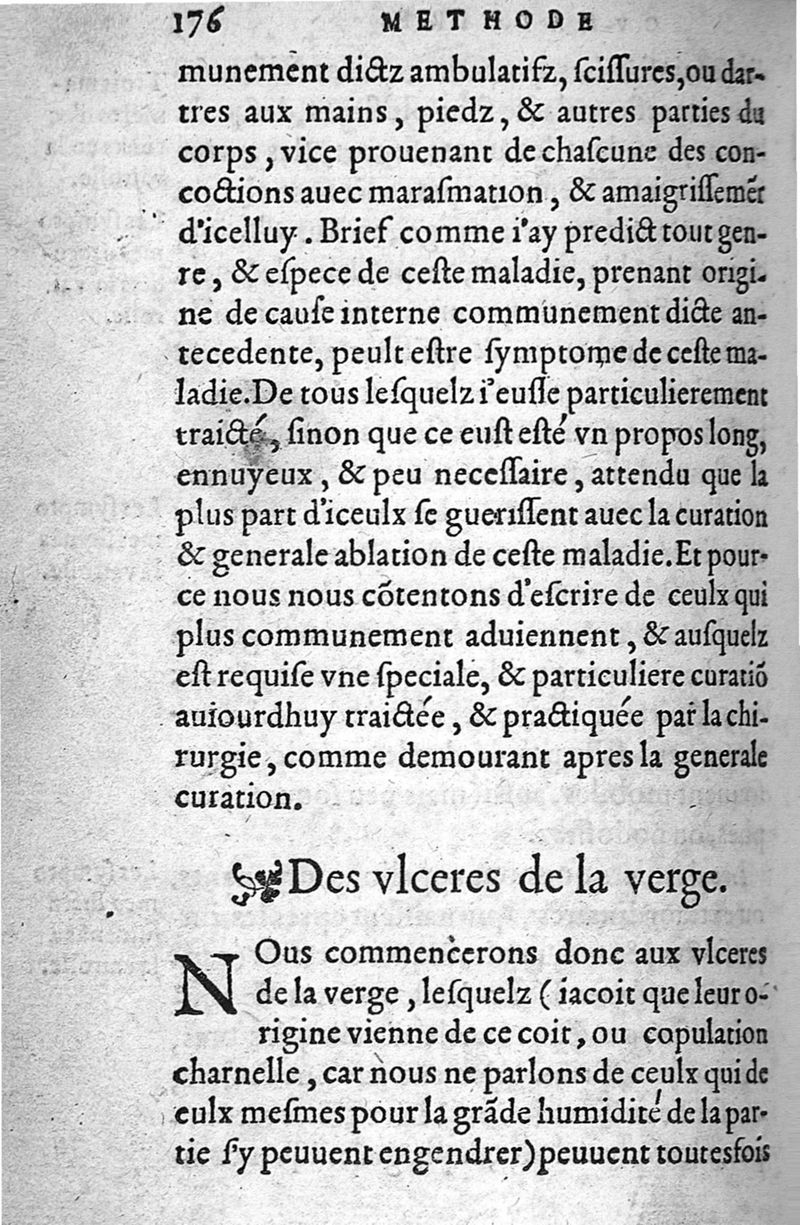 176 METHODE
munement dictz ambulatifz, ſciſſures, ou dar-
tres aux mains, piedz, & autres parties du
corps, vice prouenant de chaſcune des con-
coctions auec maraſmation, & amaigriſſemẽt
d'icelluy. Brief comme i'ay predict tout gen-
re, & eſpece de ceſte maladie, prenant origi-
ne de cauſe interne communement dicte an-
tecedente, peult eſtre ſymptome de ceſte ma-
ladie. De tous leſquelz i'euſſe particulierement
traicté, ſinon que ce euſt eſté vn propos long,
ennuyeux, & peu neceſſaire, attendu que la
plus part d'iceulx ſe gueriſſent auec la curation
& generale ablation de ceſte maladie. Et pour-
ce nous nous cõtentons d'eſcrire de ceulx qui
plus communement aduiennent, & auſquelz
eſt requiſe vne ſpeciale, & particuliere curatiõ
auiourdhuy traictée, & practiquée par la chi-
rurgie, comme demourant apres la generale
curation.
Des vlceres de la verge.
NOus commencerons donc aux vlceres
de la verge, leſquelz (iacoit que leur o-
rigine vienne de ce coit, ou copulation
charnelle, car nous ne parlons de ceulx qui de
eulx meſmes pour la grãde humidité de la par-
tie ſ'y peuuent engendrer) peuuent toutesfois